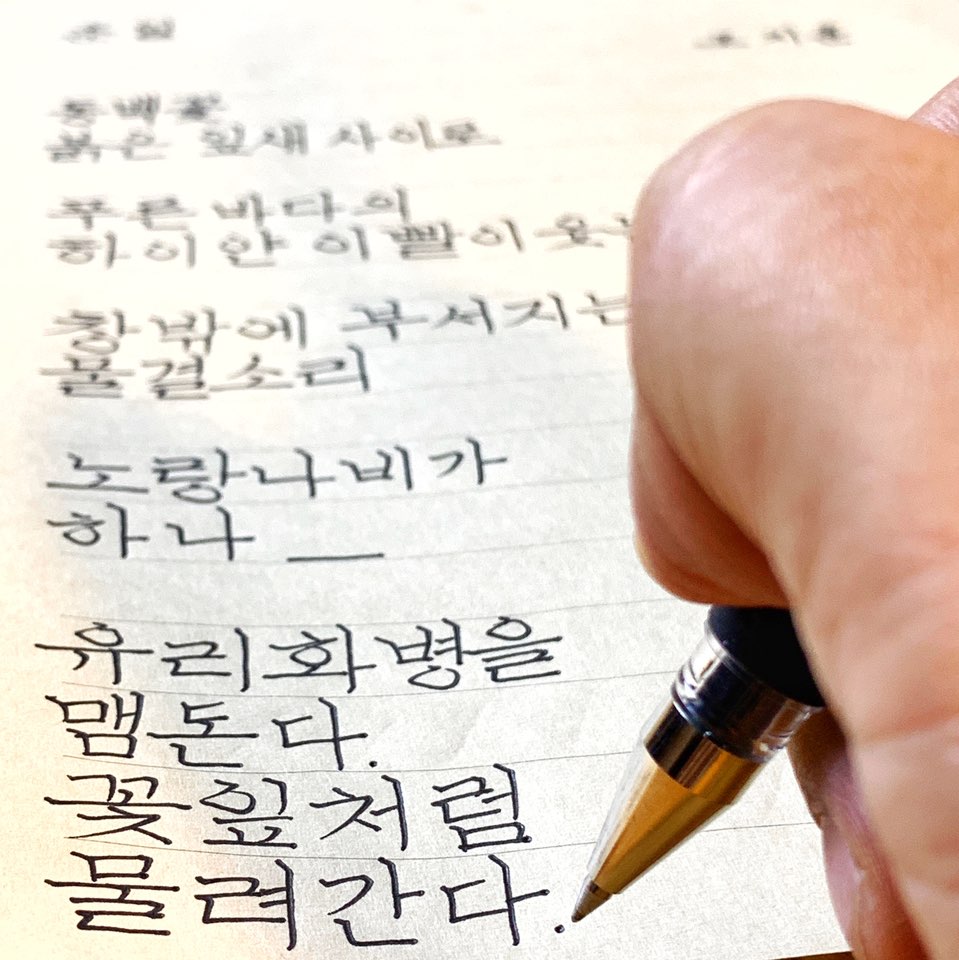 동백꽃
붉은 잎새 사이로
푸른 바다의
하이얀 이빨이 웃
창밖에 부서지는
물결소리
노랑나비가
하나 —
유리화병을
맴돈다.
꽃잎처럼
물려간다.